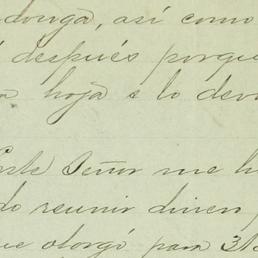 donga, así como
después porque
hoja s lo devo
Este Señor me h
do reunir diner
ue otorgó para